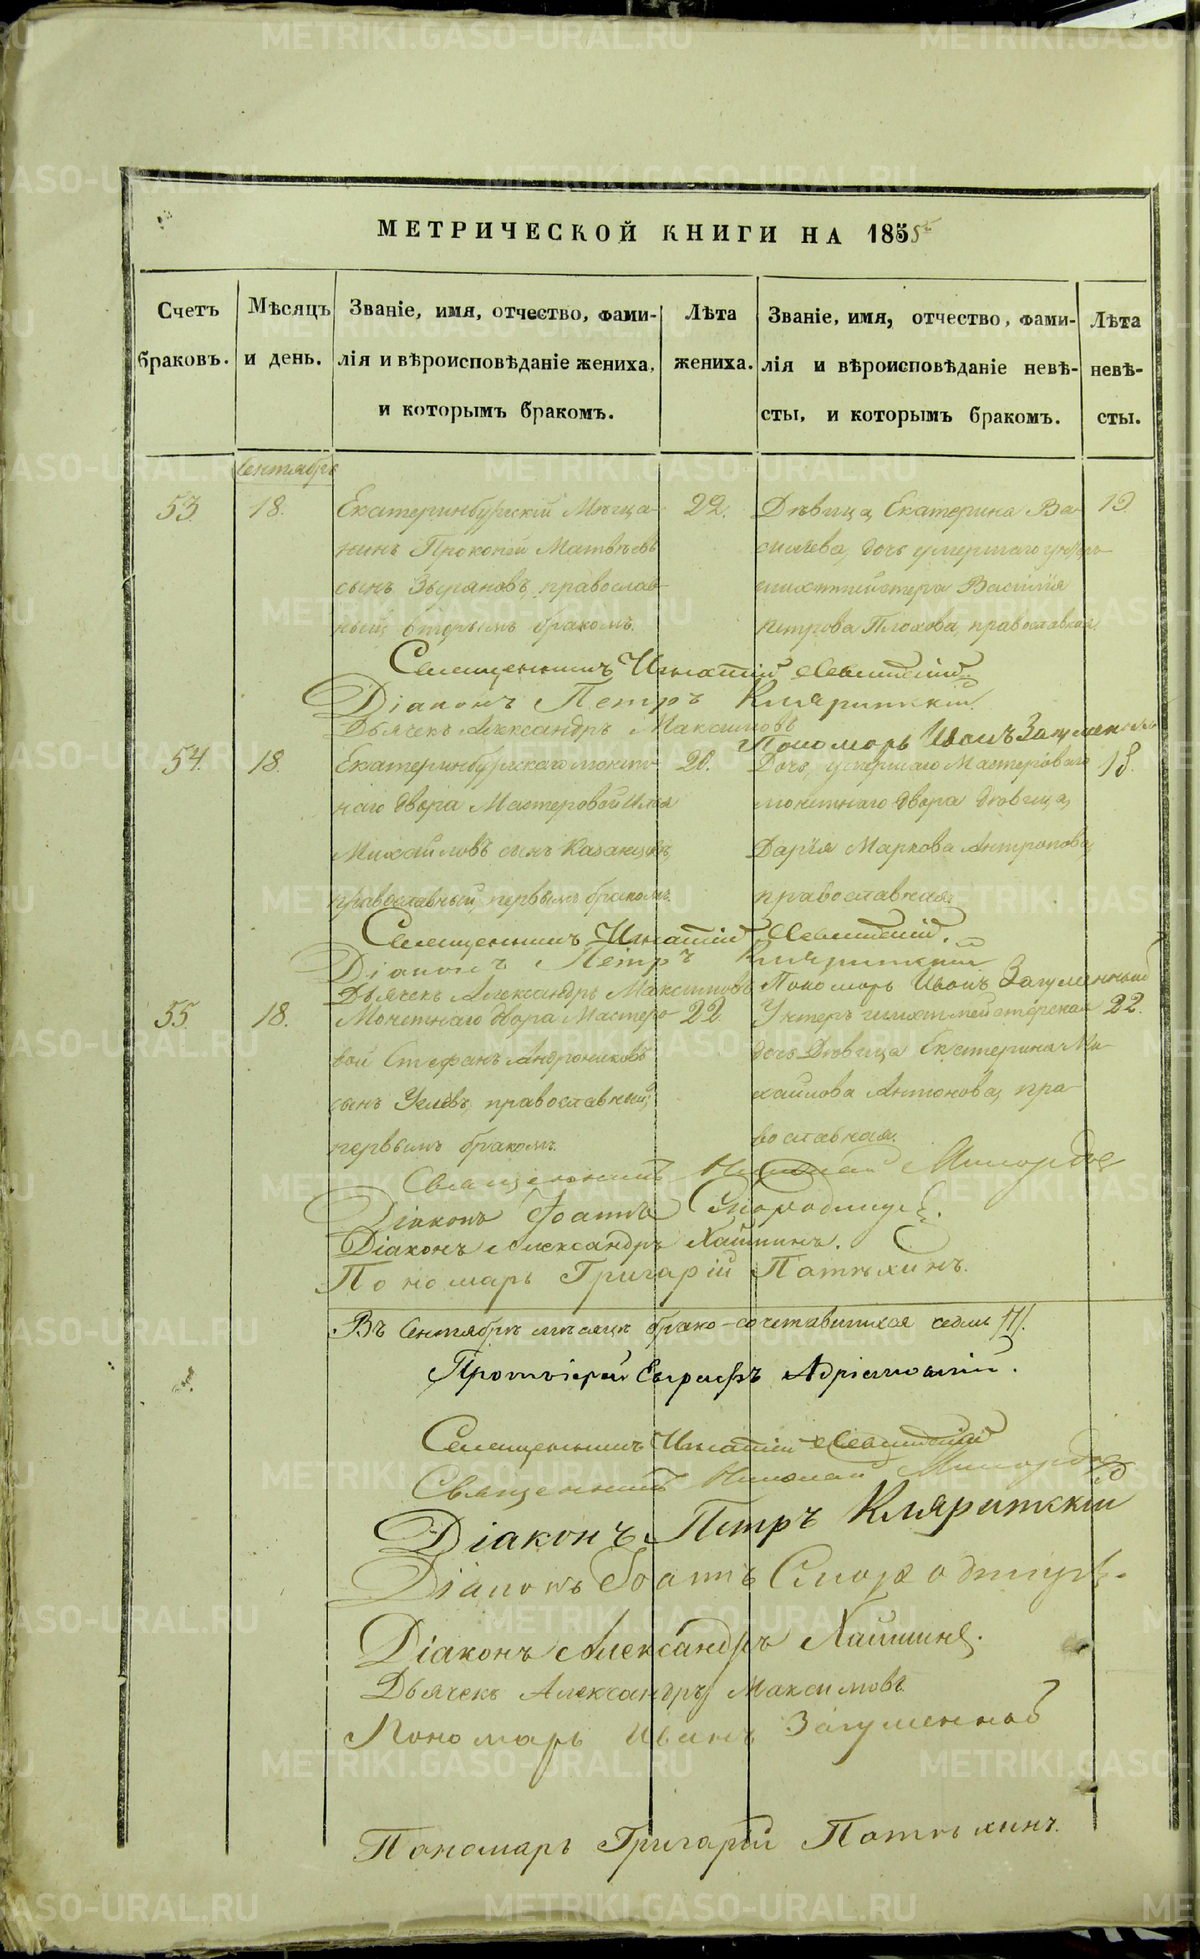 МЕТРИЧЕСКОЙ КНИГИ НА 1855
Счетъ браковъ.
Мѣсяцъ и день.
Званіе, имя, отчество, фами-
лія и вѣроисповѣданіе жениха,
и которымъ бракомъ.
Лѣта жениха.
Званіе, имя, отчество, фами-
лія и вѣроисповѣданіе невѣ-
сты, и которымъ бракомъ.
Лѣта невѣ-
сты.
Сентябрь
53.
18.
Екатеринбургскій Мѣща-
нинъ Прокопій Матвѣевъ
сынъ Зыряновъ, православ-
ный, вторымъ бракомъ.
22.
Дѣвица Екатерина Ва-
сильева, дочь умершаго унтеръ
шихтмейстера Василія
Петрова Плохова, православная.
19.
Священникъ Игнатій
Діаконъ Петръ Кляритскій
Дьячекъ Александръ Максимовъ
Пономарь Иванъ Загуменный
54.
18.
Екатеринбургскаго монет-
наго двора Мастеровой Илья
Михайловъ сынъ Казанцевъ,
православный, первымъ бракомъ.
20.
Дочь умершаго Мастероваго
монетнаго двора дѣвица,
Дарья Маркова Антропова,
православная.
18.
Священникъ Игнатій
Діаконъ Петръ Кляритскій
Дьячекъ Александръ Максимовъ Пономарь Иванъ Загуменный
55.
18.
Монетнаго двора Мастеро-
вой Стефанъ Андрониковъ
сынъ православный,
первымъ бракомъ.
22.
Унтеръ шихтмейстерская
дочь Дѣвица Екатерина Ми-
хайлова Антонова, пра-
вославная.
22.
Священникъ Николай
Діаконъ Іоаннъ
Діаконъ Александръ Хаминъ.
Пономарь Григарій Патѣхинъ.
Въ Сентябрѣ мѣсяцѣ брако-сочетавшихся седмь /7/.
Протоіерей Евграфъ
Священникъ Игнатій
Священникъ Николай
Діаконъ Петръ Кляритскій
Діаконъ Іоаннъ
Діаконъ Александръ Хаминъ.
Дьячекъ Александръ Максимовъ
Пономарь Иванъ Загуменной
Пономарь Григарій Патѣхинъ.
METRIKI.GASO-URAL.RU